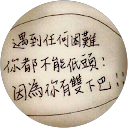 遇到任何困難
你都不能低頭！
因為你有雙下巴！！